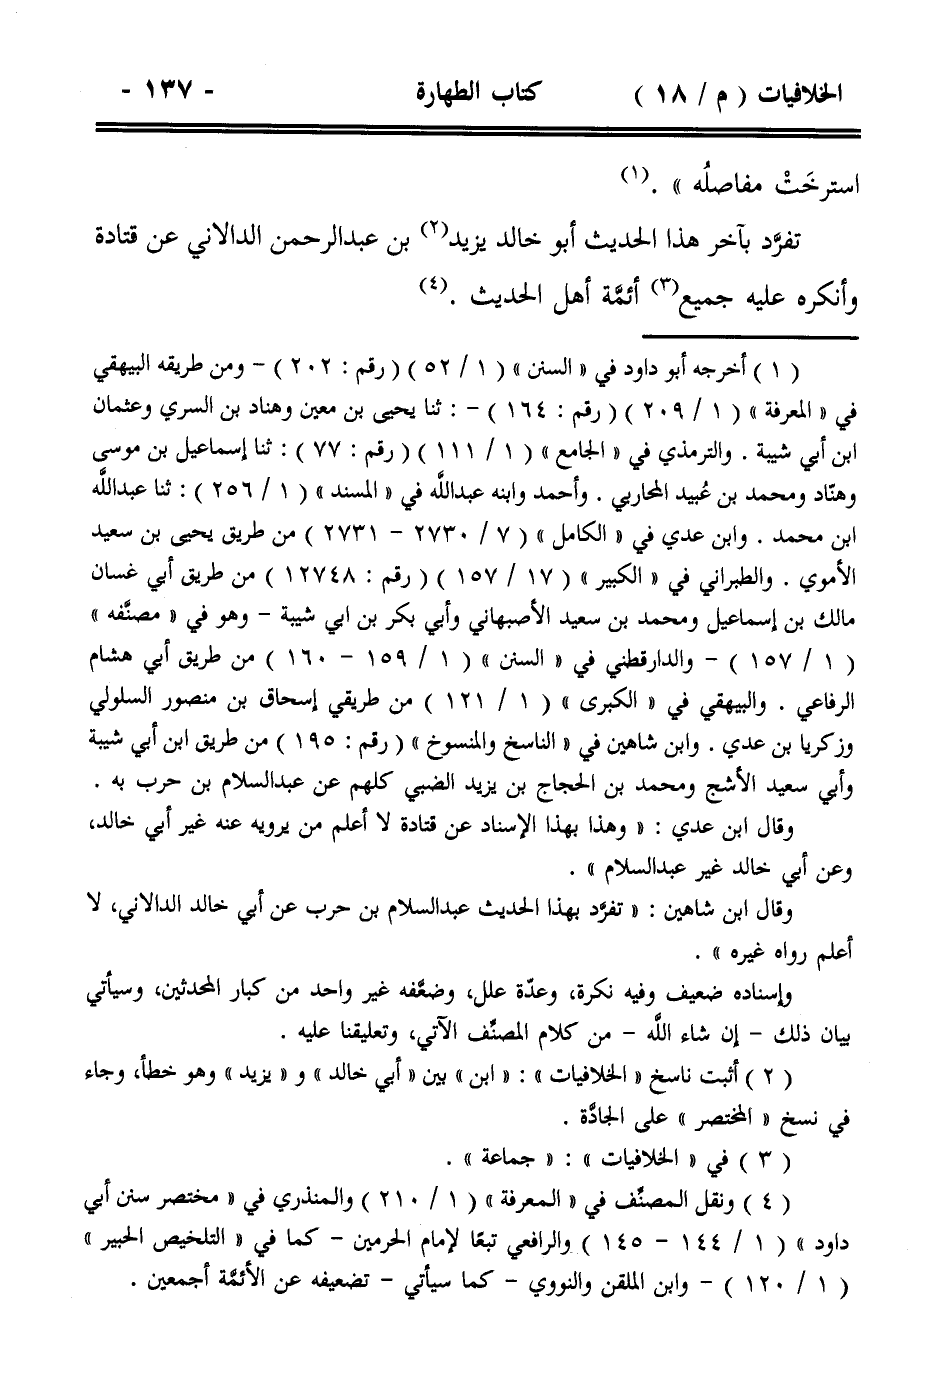 الخلافيات ( م / ١٨ ) كتاب الطهارة - ١٣٧ -
استرخَتْ مفاصلُه » .(١)
تفرَّد بآخر هذا الحديث أبو خالد يزيد(٢) بن عبدالرحمن الدالاني عن قتادة
وأنكره عليه جميع(٣) أئمَّة أهل الحديث .(٤)
( ١ ) أخرجه أبو داود في « السنن » ( ١ / ٥٢ ) ( رقم : ٢٠٢ ) - ومن طريقه البيهقي
في « المعرفة » ( ١ / ٢٠٩ ) ( رقم : ١٦٤ ) - : ثنا يحيى بن معين وهناد بن السري وعثمان
ابن أبي شيبة . والترمذي في « الجامع » ( ١ / ١١١ ) ( رقم : ٧٧ ) : ثنا إسماعيل بن موسى
وهنّاد ومحمد بن عُبيد المحاربي . وأحمد وابنه عبدالله في « المسند » ( ١ / ٢٥٦ ) : ثنا عبدالله
ابن محمد . وابن عدي في « الكامل » ( ٧ / ٢٧٣٠ - ٢٧٣١ ) من طريق يحيى بن سعيد
الأموي . والطبراني في « الكبير » ( ١٧ / ١٥٧ ) ( رقم : ١٢٧٤٨ ) من طريق أبي غسان
مالك بن إسماعيل ومحمد بن سعيد الأصبهاني وأبي بكر بن ابي شيبة - وهو في « مصنَّفه »
( ١ / ١٥٧ ) - والدارقطني في « السنن » ( ١ / ١٥٩ - ١٦٠ ) من طريق أبي هشام
الرفاعي . والبيهقي في « الكبرى » ( ١ / ١٢١ ) من طريقي إسحاق بن منصور السلولي
وزكريا بن عدي . وابن شاهين في « الناسخ والمنسوخ » ( رقم : ١٩٥ ) من طريق ابن أبي شيبة
وأبي سعيد الأشج ومحمد بن الحجاج بن يزيد الضبي كلهم عن عبدالسلام بن حرب به .
وقال ابن عدي : « وهذا بهذا الإسناد عن قتادة لا أعلم من يرويه عنه غير أبي خالد،
وعن أبي خالد غير عبدالسلام » .
وقال ابن شاهين : « تفرَّد بهذا الحديث عبدالسلام بن حرب عن أبي خالد الدالاني، لا
أعلم رواه غيره » .
وإسناده ضعيف وفيه نكرة، وعدّة علل، وضعَّفه غير واحد من كبار المحدثين، وسيأتي
بيان ذلك - إن شاء اللَّه - من كلام المصنِّف الآتي، وتعليقنا عليه .
( ٢ ) أثبت ناسخ « الخلافيات » : « ابن » بين « أبي خالد » و « يزيد » وهو خطأ، وجاء
في نسخ « المختصر » على الجادَّة .
( ٣ ) في « الخلافيات » : « جماعة » .
( ٤ ) ونقل المصنِّف في « المعرفة » ( ١ / ٢١٠ ) والمنذري في « مختصر سنن أبي
داود » ( ١ / ١٤٤ - ١٤٥ ) والرافعي تبعًا لإمام الحرمين - كما في « التلخيص الحبير »
( ١ / ١٢٠ ) - وابن الملقن والنووي - كما سيأتي - تضعيفه عن الأئمَّة أجمعين .